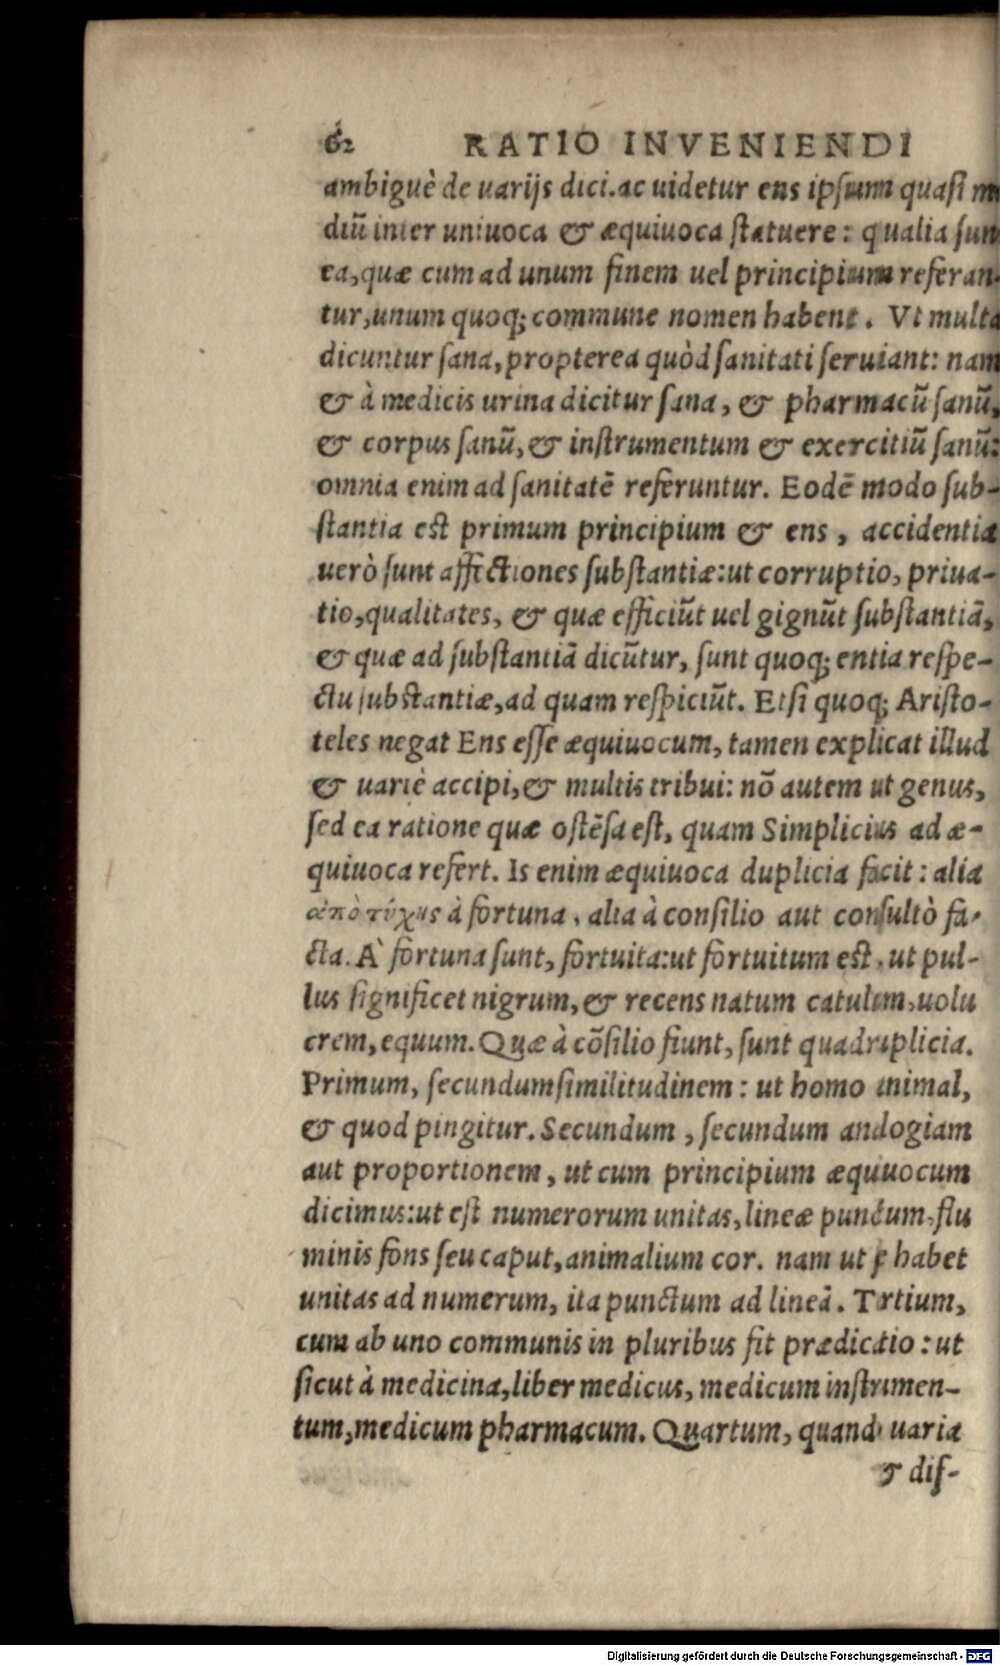 62 RATIO INVENIENDI
ambiguè de uarijs dici. ac uidetur ens ipsum quasi
diũ inter uniuoca & æquiuoca statuere: qualia sun
ea, quæ cum ad unum finem uel principium referan-
tur, unum quoq; commune nomen habent. Vt multa
dicuntur sana, propterea quòd sanitati seruiant: nam
& à medicis urina dicitur sana, & pharmacũ sanũ,
& corpus sanũ, & instrumentum & exercitiũ sanũ:
omnia enim ad sanitatẽ referuntur. Eodẽ modo sub-
stantia est primum principium & ens, accidentia
uerò sunt affectiones substantiæ: ut corruptio, priua-
tio, qualitates, & quæ efficiũt uel gignũt substantiã,
& quæ ad substantiã dicũtur, sunt quoq; entia respe-
ctu substantiæ, ad quam respiciũt. Etsi quoq; Aristo-
teles negat Ens esse æquiuocum, tamen explicat illud
& uariè accipi, & multis tribui: nõ autem ut genus,
sed ea ratione quæ ostẽsa est, quam Simplicius ad æ-
quiuoca refert. Is enim æquiuoca duplicia facit: alia
ἀπὸ τύχης à fortuna, alia à consilio aut consultò fa-
cta. À fortuna sunt, fortuita: ut fortuitum est, ut pul-
lus significet nigrum, & recens natum catulum, uolu
crem, equum. Quæ à cõsilio fiunt, sunt quadruplicia.
Primum, secundum similitudinem: ut homo animal,
& quod pingitur. Secundum, secundum analogiam
aut proportionem, ut cum principium æquiuocum
dicimus: ut est numerorum unitas, lineæ punctum, flu
minis fons seu caput, animalium cor. nam ut se habet
unitas ad numerum, ita punctum ad lineã. Tertium,
cum ab uno communis in pluribus fit prædicatio: ut
sicut à medicina, liber medicus, medicum instrumen-
tum, medicum pharmacum. Quartum, quando uaria
& dis-
Digitalisierung gefördert durch die Deutsche Forschungsgemeinschaft - DFG